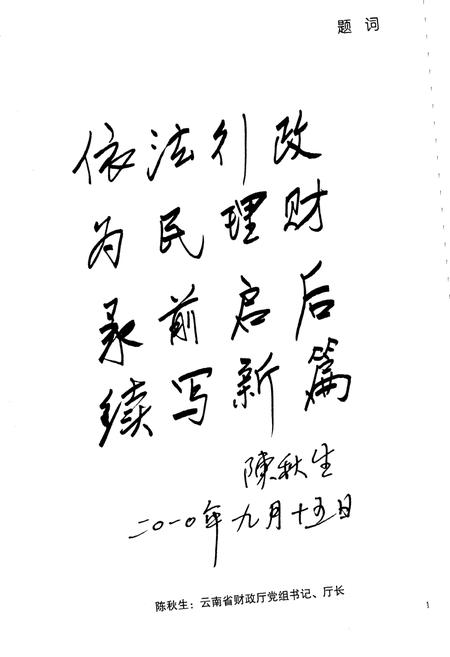 题 词
依法行政
为民理财
承前启后
续写新篇
陳秋生
二〇一〇年九月十五日
陈秋生：云南省财政厅党组书记、厅长
1